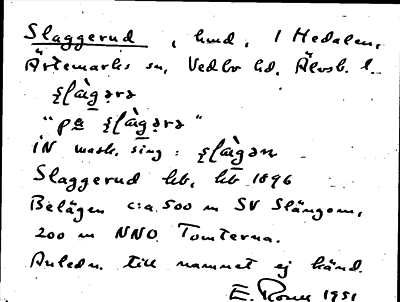 Slaggerud, hmd, i Hedalen,
Ärtemarks sn, Vedbo hd, Älvsb. l.
ʂlàgərə
"på ʂlàgərə"
IN mask. sing: ʂlàgən
Slaggerud hb, hb 1896
Belägen c:a 500 m SV Slängom,
200 m NNO Tomterna.
Anledn. till namnet ej känd.
E. 1951